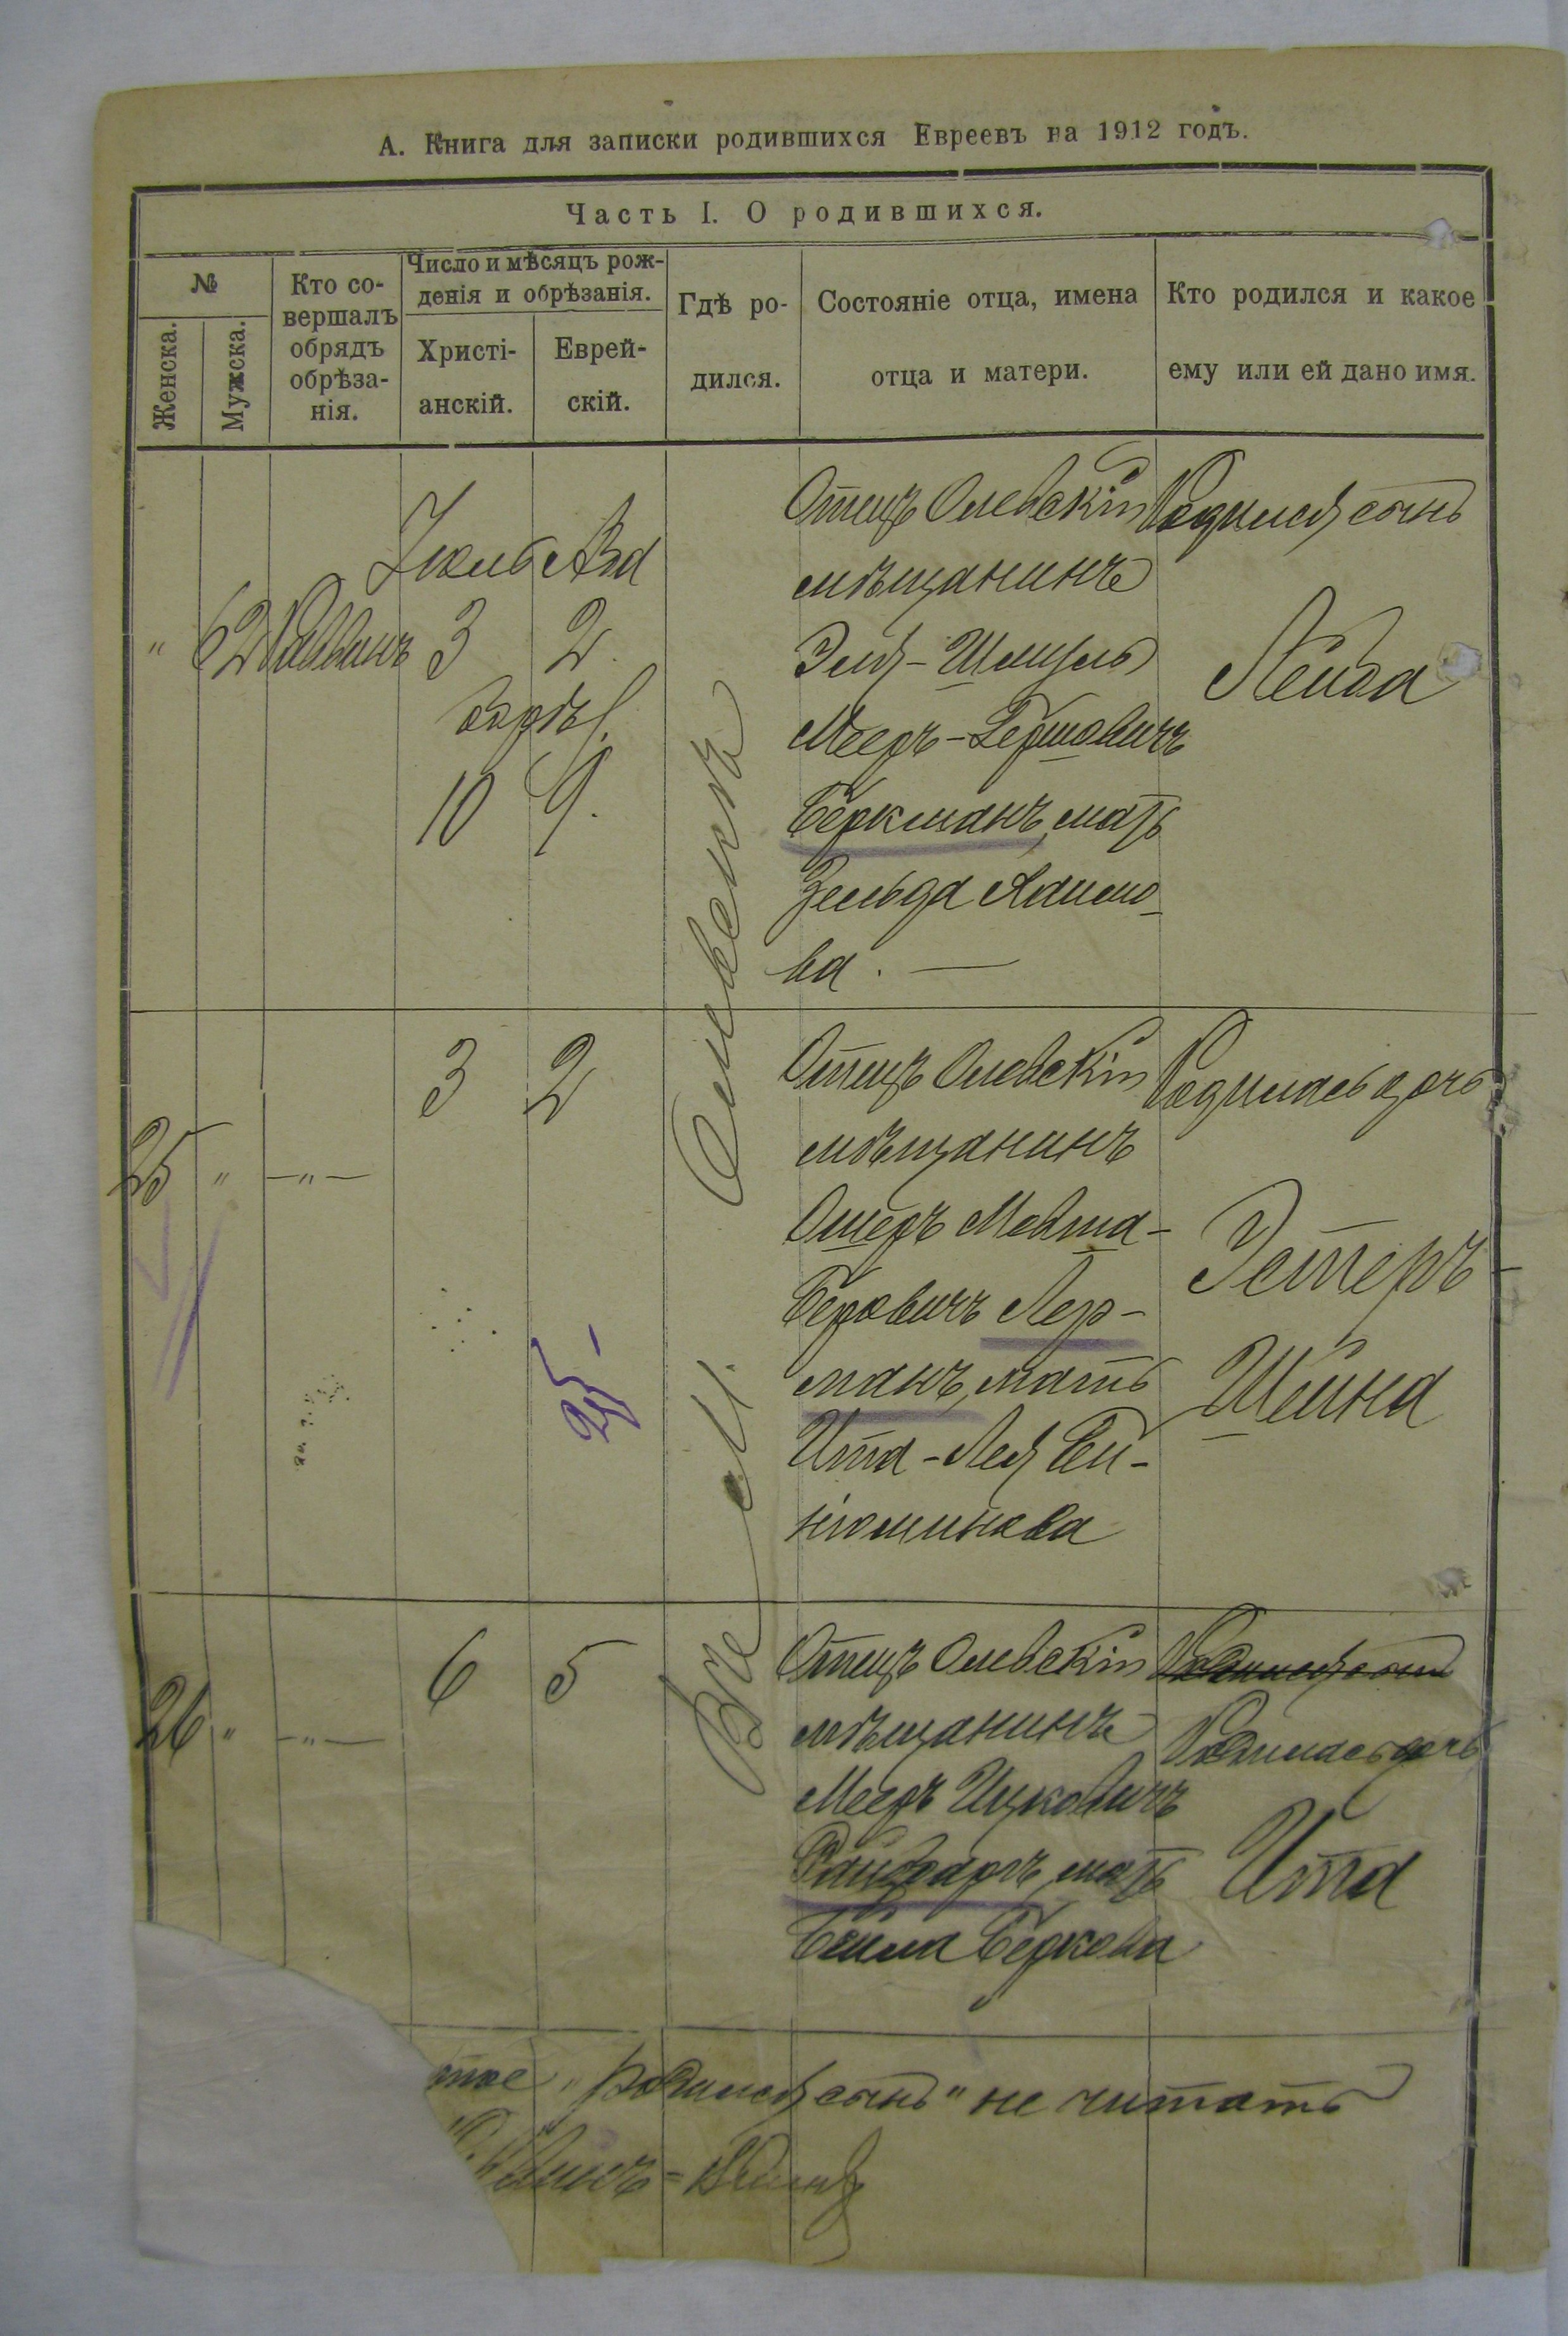 А. Книга для записки родившихся Евреевъ на 1912 годъ.
Часть I. О родившихся.
№
Женска.
Мужска.
Кто со-
вершалъ
обрядъ
обрѣза-
нія.
Число и мѣсяцъ рож-
денія и обрѣзанія.
Христі-
анскій.
Еврей-
скій.
Гдѣ ро-
дился.
Состояніе отца, имена
отца и матери.
Кто родился и какое
ему или ей дано имя.
"
62
Раввинъ
Іюль Ава
3 2
10 9.
Отецъ Олевскій
мѣщанинъ
Эля-Шмуль
Мееръ-Гершовичъ
Беркманъ, мать
Зельда Хаимо-
ва. —
Родился сынъ
Лейба
Въ м. Олевскѣ
25
"
—"—
3 2
25
Отецъ Олевскій
мѣщанинъ
Ошеръ Мовша-
Беровичъ Лер-
манъ, мать
Ита-Лея Бен-
юминова
Родилась дочь
Эстеръ-
Шейна
26
"
—"—
6 5
Отецъ Олевскій
мѣщанинъ
Мееръ Ицковичъ
мать
Бейла Беркова
Родился сынъ
Родилась дочь
Ита
тое „родился сынъ" не читать